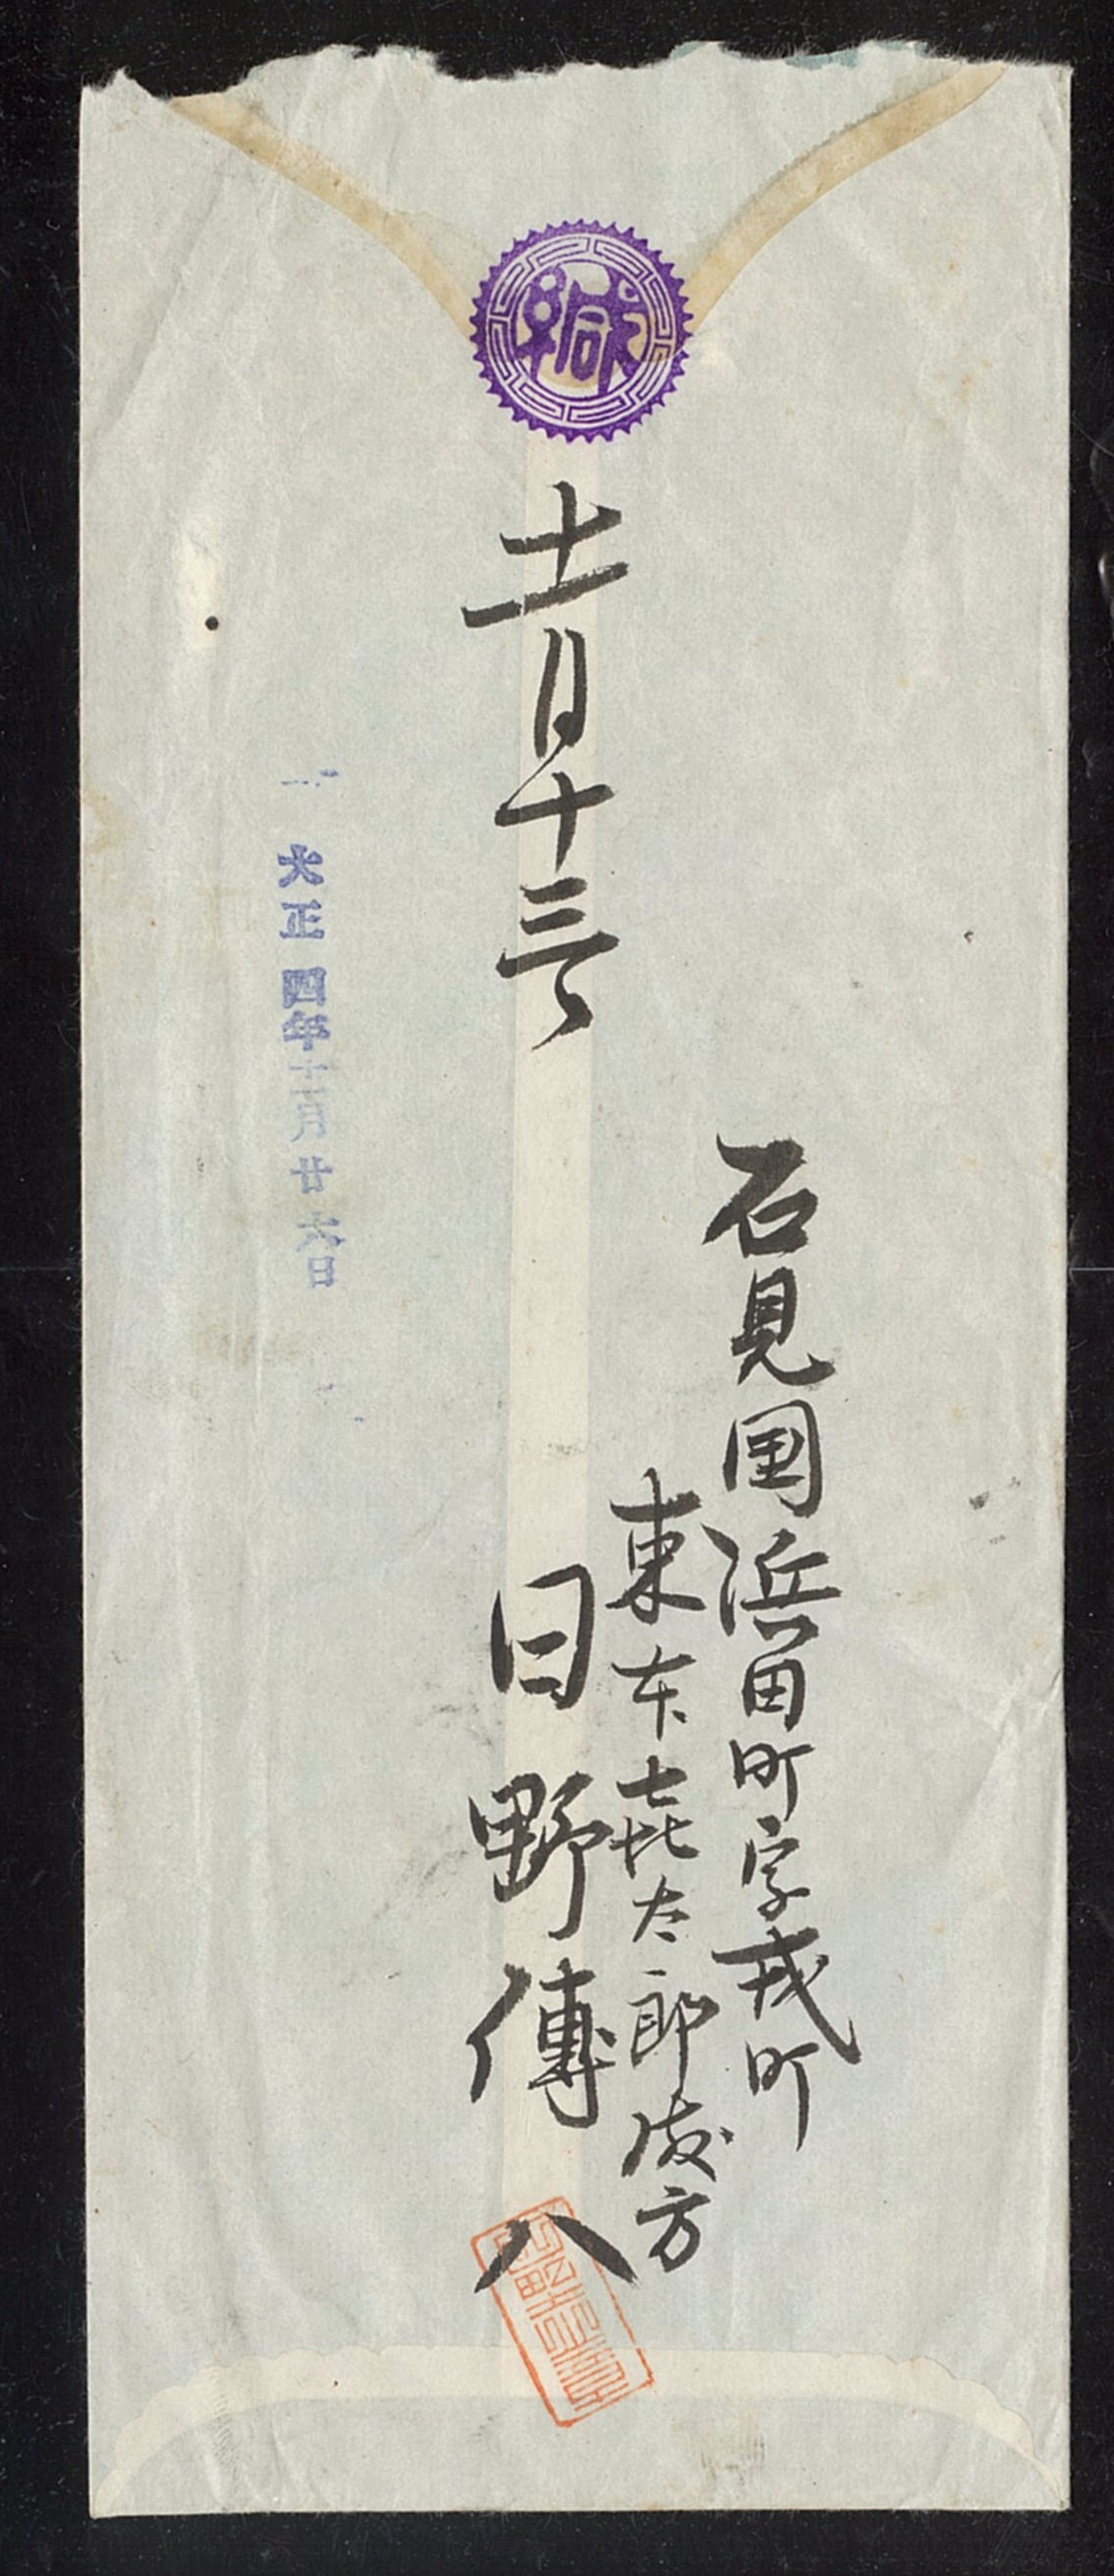 緘
石見国浜田町字戎町
東本㐂太郎殿方
十一月十三日
日野傳八
大正四年十一月廿六日